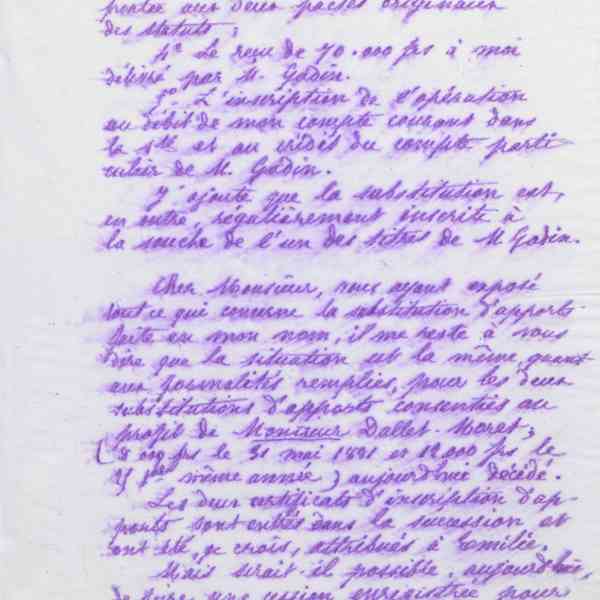 portée aux deux pactes originaux
des statuts ;
4° Le reçu de 70.000 frs à moi
délivré par M. Godin.
5° L'inscription de l'opération
au débit de mon compte courant dans
la Sté et au crédit du compte parti-
culier de M. Godin.
J'ajoute que la substitution est,
en outre, régulièrement inscrite à
la souche de l'un des titres de M. Godin.
Cher Monsieur, vous ayant exposé
tout ce qui concerne la substitution d'apports
faite en mon nom, il me reste à vous
dire que la situation est la même, quant
aux formalités remplies, pour les deux
substitutions d'apports consenties au
profit de Monsieur Dallet-Moret ;
frs le 31 mai 1881 et 12.000 frs le
même année) aujourd'hui décédé.
Les deux certificats d'inscription d'ap-
ports sont entrés dans la succession et
ont été, je crois, attribués à Emilie.
Mais serait-il possible, aujourd'hui,
de faire une cession enregistrée pour